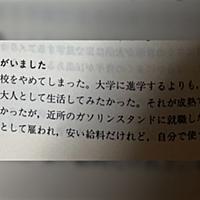 がいました
校をやめてしまった。大学に進学するよりも、
大人として生活してみたかった。それが成熟
かったが、近所のガソリンスタンドに就職した
として雇われ、安い給料だけれど、自分で使